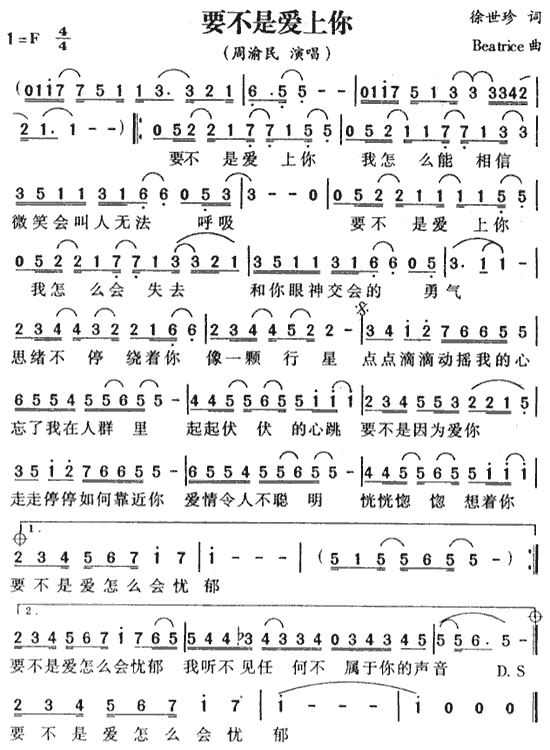 要不是爱上你
徐世珍 词
1=F 4/4
(周渝民 演唱)
Beatrice 曲
(011̇7 7 5 1 1 3. 3 2 1 | 6 . 5 5 - - | 0117 5 1 3 3 3342
2 1. 1 - -) 0 5 2 2 1 7 7 1 5 5 | 0 5 2 2 1 1 7 7 1 3 3
要不 是爱 上你 我怎 么能 相信
3 5 1 1 3 1 6 6 0 5 3 | 3 - - 0 | 0 5 2 2 1 1 1 1 5 5
微笑会叫人无法 呼吸 要不 是爱 上你
0 5 2 2 1 7 7 1 3 3 2 1 | 3 5 1 1 3 1 6 6 0 5 | 3. 1 1 -
我怎 么会 失去 和你眼神交会的 勇气
2 3 4 4 3 2 2 1 6 6 | 2 3 4 4 5 2 5 | 3 4 1̇ 2̇ 7 6 6 5 5
思绪不 停 绕着你 像一颗 行 星 点点滴滴动摇我的心
6 5 5 4 5 5 5 5 - | 4 4 5 5 6 5 5 1̇ 1̇ 1̇ | 2 3 4 5 5 3 2 2 1 5
忘了我在人群 里 起起伏 伏 的心跳 要不是因为爱你
3 5 1̇ 2̇ 7 6 6 5 5 - | 6 5 5 4 5 5 5 5 - | 4 4 5 5 6 5 5 1̇ 1̇
走走停停如何靠近你 爱情令人不聪 明 恍恍惚 惚 想着你
1.
2 3 4 5 6 7 1̇ 7 | 1̇ - - - | (5 1 5 5 6 5 5 -)
要 不 是 爱 怎 么 会 忧 郁
2.
2 3 4 5 6 7 1̇ 7 6 5 | 5 4 4 ♭3 4 3 3 4 0 3 4 3 4 5 | 5 5 6 . 5 -
要不是爱怎么会忧郁 我听不见任 何不 属于你的声音 D.S
2 3 4 5 6 7 1̇ 7 | 1̇ - - - | 1̇ 0 0 0
要 不 是 爱 怎 么 会 忧 郁